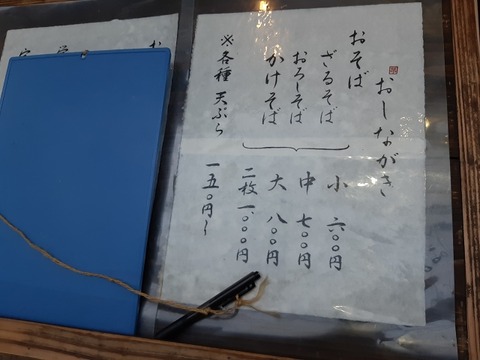 おしながき
おそば
ざるそば
おろしそば
かけそば
小 六〇〇円
中 七〇〇円
大 八〇〇円
二枚 一、〇〇〇円
※各種 天ぷら
一五〇円〜
お